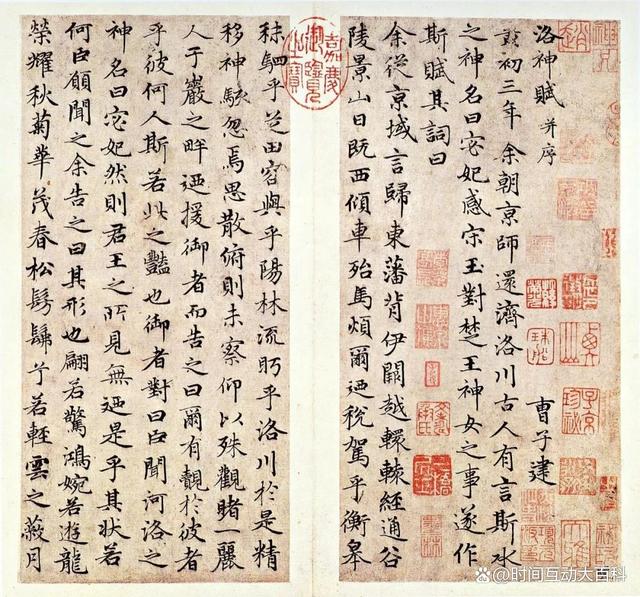 洛神賦 并序 曹子建
黃初三年余朝京師還濟洛川古人有言斯水
之神名曰宓妃感宋玉對楚王神女之事遂作
斯賦其詞曰
余從京域言歸東藩背伊闕越轘轅經通谷
陵景山日既西傾車殆馬煩爾迺稅駕乎衡皋
秣駟乎芝田容與乎陽林流眄乎洛川於是精
移神駭忽焉思散俯則未察仰以殊觀睹一麗
人于巖之畔迺援御者而告之曰爾有覿於彼者
乎彼何人斯若此之豔也御者對曰臣聞河洛之
神名曰宓妃然則君王之所見無迺是乎其狀若
何臣願聞之余告之曰其形也翩若驚鴻婉若遊龍
榮耀秋菊華茂春松髣髴兮若輕雲之蔽月
嘉慶御覽之寶
@时间互动大百科